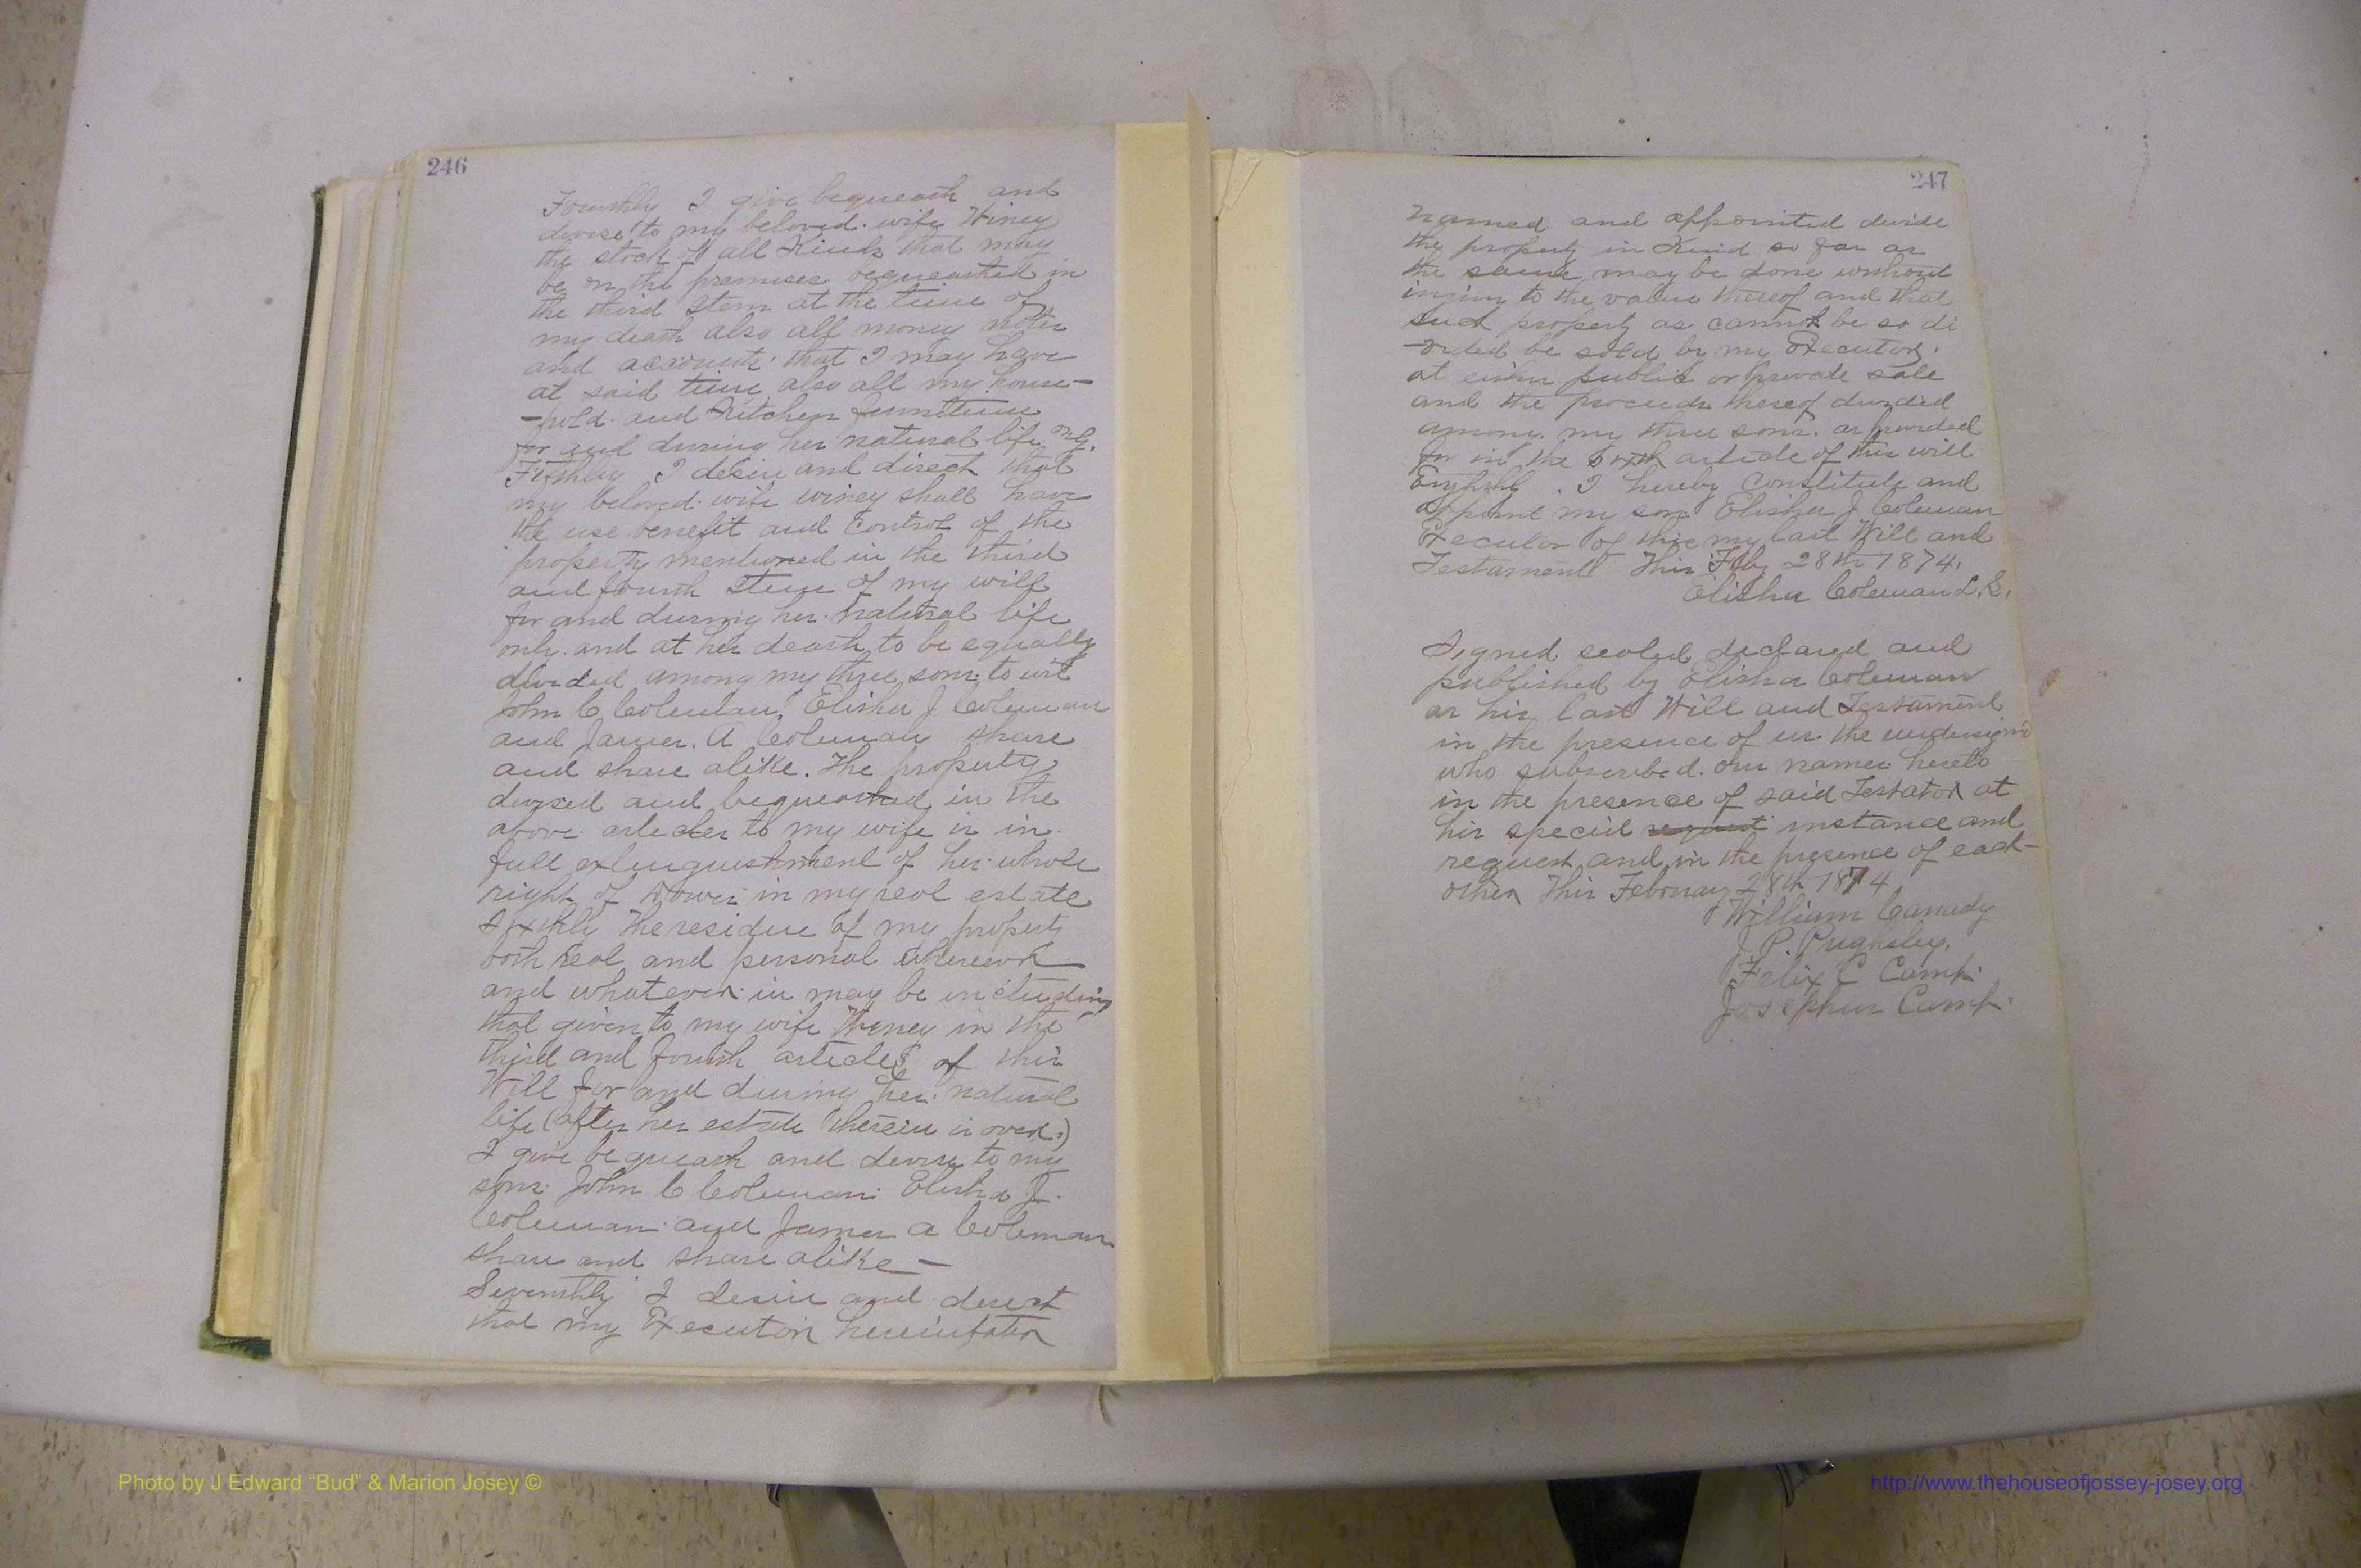 246
Fourthly I give bequeath and
devise to my beloved wife Winey
the stock of all Kinds that may
be on the premises bequeathed in
the third Item at the time of
my death also all money notes
and accounts that I may have
at said time also all my house-
-hold and Kitchen furniture
for and during her natural life only.
Fifthly I desire and direct that
my beloved wife winey shall have
the use benefit and Control of the
property mentioned in the third
and fourth Item of my will
for and during her natural life
only. and at her death to be equally
divided among my three sons to wit
John C Coleman, Elisha J Coleman
and James. A Coleman share
and share alike. The property
devised and bequeathed in the
above articles to my wife is in
full extinguishment of her whole
right of Dower in my real estate
Sixthly The residue of my property
both real and personal
and whatever in may be including
that given to my wife Winey in the
third and fourth articles of this
Will for and during her natural
life (after her estate therein is over.)
I give bequeath and devise to my
sons John C Coleman Elisha J.
Coleman and James A Coleman
share and share alike —
Seventhly I desire and direct
that my Executor hereinafter
247
named and appointed divide
the property in Kind so far as
the same may be done without
injury to the value thereof and that
such property as cannot be so di
-vided be sold by my Executor.
at either public or private sale
and the proceeds thereof divided
among my three sons. as provided
for in the sixth article of this will
I hereby Constitute and
appoint my son Elisha J Coleman
Executor of this my last Will and
Testament This Feby 28th 1874.
Elisha Coleman L.S.
Signed sealed declared and
published by Elisha Coleman
as his last Will and Testament
in the presence of us the undersign'd
who subscribed our names hereto
in the presence of said Testator at
his special request instance and
request and in the presence of each
other This February 28th 1874
William Canady
J. P. Pughsley.
Felix C Camp
Josephus Camp.
Photo by J Edward “Bud” & Marion Josey ©
http://www.thehouseofjossey-josey.org